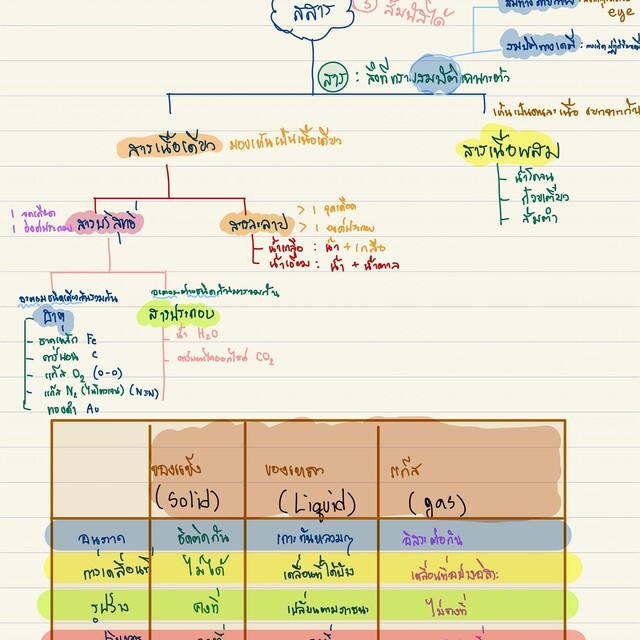 สสาร
3 สัมผัสได้
eye
สมบัติทางเคมี :
สาร : สิ่งที่ทราบสมบัติเฉพาะตัว
สารเนื้อเดียว มองเห็นเป็นเนื้อเดียว
สารเนื้อผสม
น้ำโคลน
ก๋วยเตี๋ยว
ส้มตำ
1 จุดเดือด
1 องค์ประกอบ
สารบริสุทธิ์
สารละลาย
> 1 จุดเดือด
> 1 องค์ประกอบ
น้ำเกลือ : น้ำ + เกลือ
น้ำเชื่อม : น้ำ + น้ำตาล
อะตอมชนิดเดียวกันรวมกัน
ธาตุ
ธาตุเหล็ก Fe
คาร์บอน C
แก๊ส O2 (O-O)
แก๊ส N2 (ไนโตรเจน) (N≡N)
ทองคำ Au
อะตอมต่างชนิดกันมารวมกัน
สารประกอบ
น้ำ H2O
คาร์บอนไดออกไซด์ CO2
ของแข็ง (Solid) ของเหลว (Liquid) แก๊ส (gas)
อนุภาค ชิดติดกัน เกาะกันหลวมๆ อิสระต่อกัน
การเคลื่อนที่ ไม่ได้ เคลื่อนที่ได้บ้าง เคลื่อนที่อย่างอิสระ
รูปร่าง คงที่ เปลี่ยนตามภาชนะ ไม่คงที่